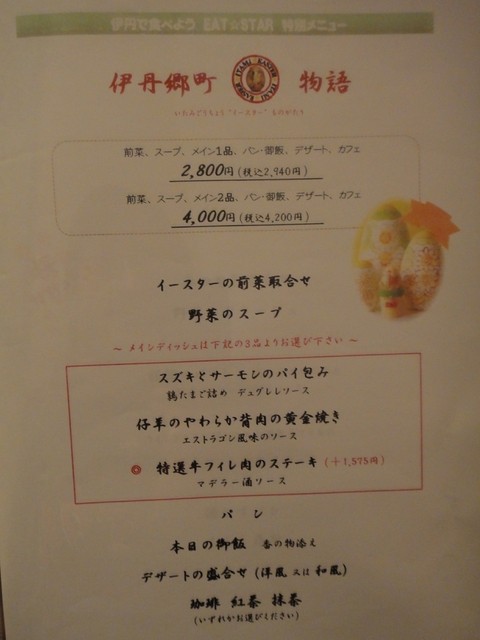 伊丹で食べよう EAT☆STAR 特選メニュー
伊丹郷町 物語
ITAMI EASTER
いたみごうちょう "イースター" ものがたり
前菜、スープ、メイン1品、パン・御飯、デザート、カフェ
2,800円(税込2,940円)
前菜、スープ、メイン2品、パン・御飯、デザート、カフェ
4,000円(税込4,200円)
イースターの前菜取合せ
野菜のスープ
～ メインディッシュは下記の3品よりお選び下さい ～
スズキとサーモンのパイ包み
鶏たまご詰め デュグレレソース
仔羊のやわらか背肉の黄金焼き
エストラゴン風味のソース
特選牛フィレ肉のステーキ (＋1,575円)
マデラー酒ソース
パン
本日の御飯 香の物添え
デザートの盛合せ (洋風 又は 和風)
珈琲 紅茶 抹茶
(いずれかお選びください)